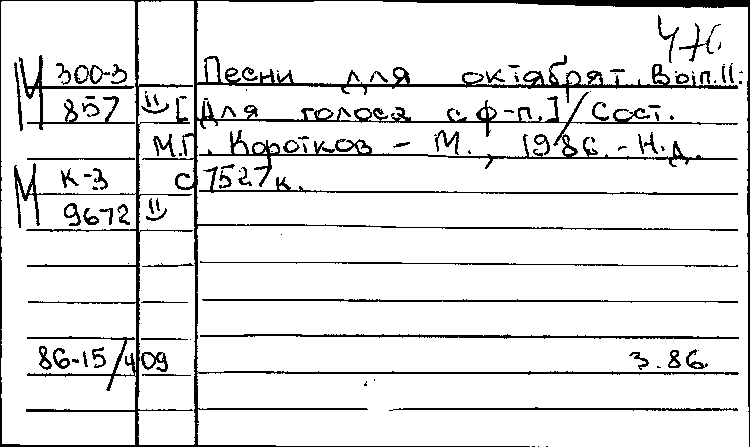 М 300-3 Песни для октябрят. Вып. 11.
857 [Для голоса с ф-п.] / Сост.
М.П. Коротков – М., 1986. – Н.д.
М К-3 С 7527 к.
9672
86-15/409 3.86.